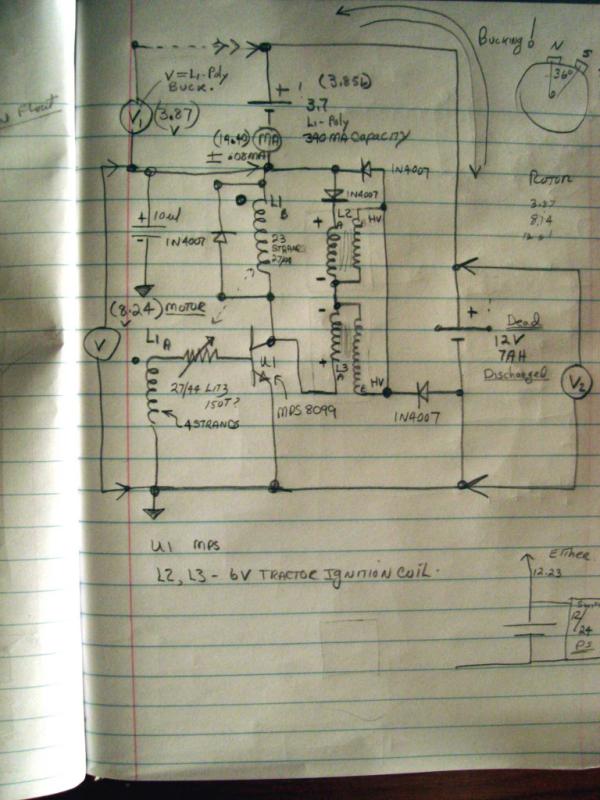 Bucking!
N
S
36°
V = Li-Poly
Buck.
V1
(3.87)
V
(3.856)
+ !
3.7
Li-Poly
340 MA Capacity
(14.40)
MA
± .08MA
1N4007
1N4007
Rotor
3.87
8.14
+
10uf
-
1N4007
L1
B
23
STRANDS
27/44
L2
HV
+
-
-
+
(8.24) MOTOR
V
V
L1A
U1
L3
HV
27/44 LITZ
150T?
4 STRANDS
MPS 8099
1N4007
+ !
Dead
12V
7AH
Discharged
V2
U1 MPS
L2, L3 - 6V TRACTOR IGNITION COIL.
Either
12.23
12/
24
PS